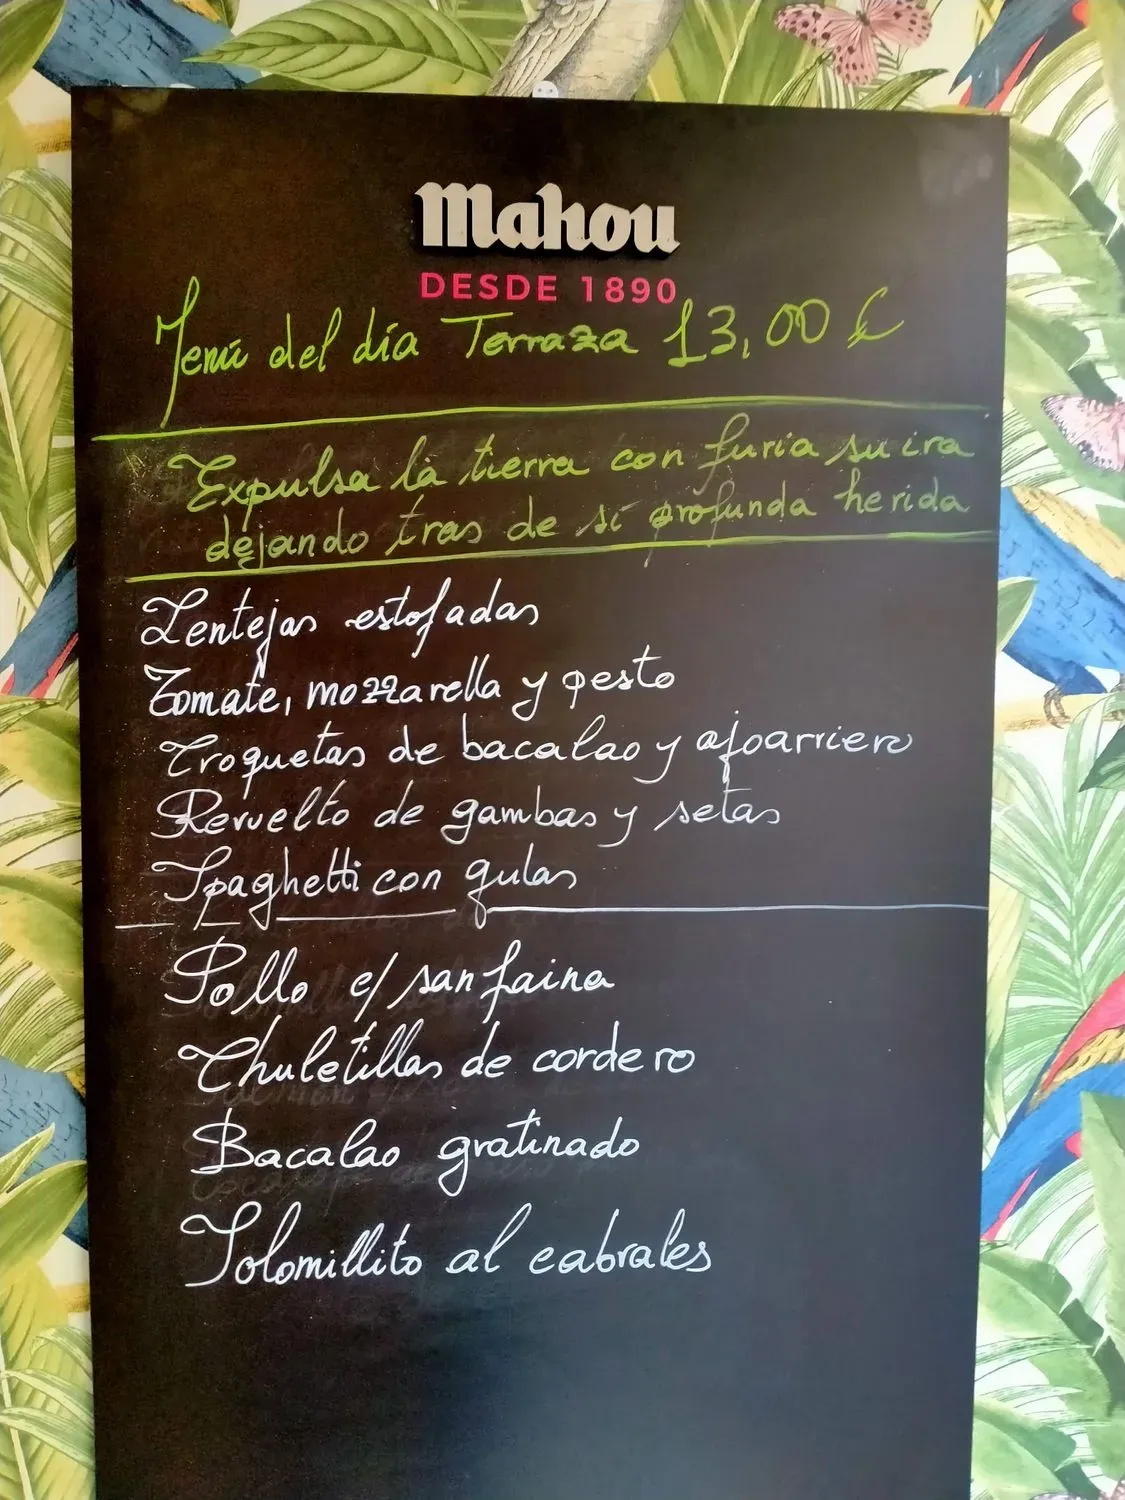 Mahou
DESDE 1890
Menú del día Terraza 13,00 €
Expulsa la tierra con furia su ira
dejando tras de sí profunda herida
Lentejas estofadas
Tomate, mozzarella y pesto
Croquetas de bacalao y ajoarriero
Revuelto de gambas y setas
Spaghetti con gulas
Pollo c/ sanfaina
Chuletillas de cordero
Bacalao gratinado
Solomillito al cabrales